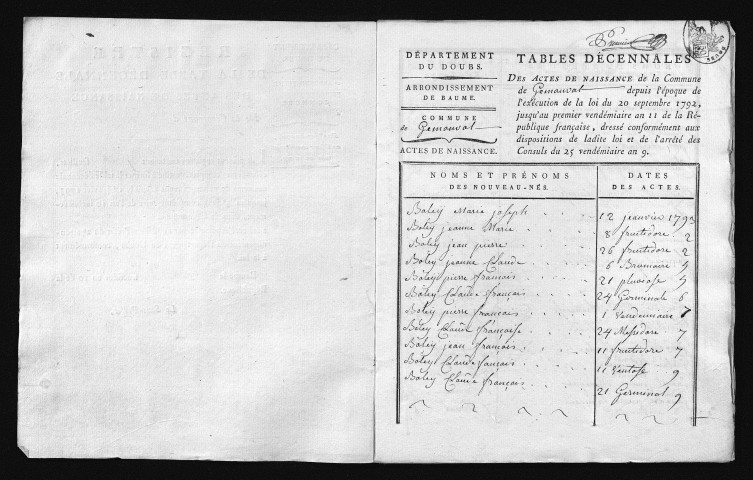 Premier
DÉPARTEMENT
DU DOUBS.
ARRONDISSEMENT
DE BAUME.
COMMUNE
de Gemonval
ACTES DE NAISSANCE.
TABLES DÉCENNALES
DES ACTES DE NAISSANCE de la Commune
de Gemonval depuis l'époque de
l'exécution de la loi du 20 septembre 1792,
jusqu'au premier vendémiaire an 11 de la Ré-
publique française, dressé conformément aux
dispositions de ladite loi et de l'arrêté des
Consuls du 25 vendémiaire an 9.
NOMS ET PRÉNOMS
DES NOUVEAU-NÉS.
DATES
DES ACTES.
Boley Marie joseph . . . 12 janvier 1793
Boley jeanne Marie . . . 8 fructidore . 2
Boley jean pierre . . . . 26 fructidore 2
Boley jeanne Claude . . . 6 Brumaire 5
Boley pierre françois . . . 21 pluviose 5
Boley Claude françois . . . 24 Germinale 6
Boley pierre françois . . . 1 Vendemiaire 7
Boley Claude françoise . . . 24 Messidore 7
Boley jean françois . . . 11 fructidore 7
Boley Claude françois . . . 11 Ventose 9
Boley Claude françois . . . 21 Germinal 9